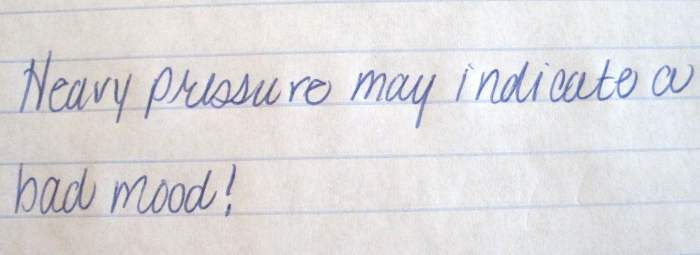 Heavy pressure may indicate a
bad mood!